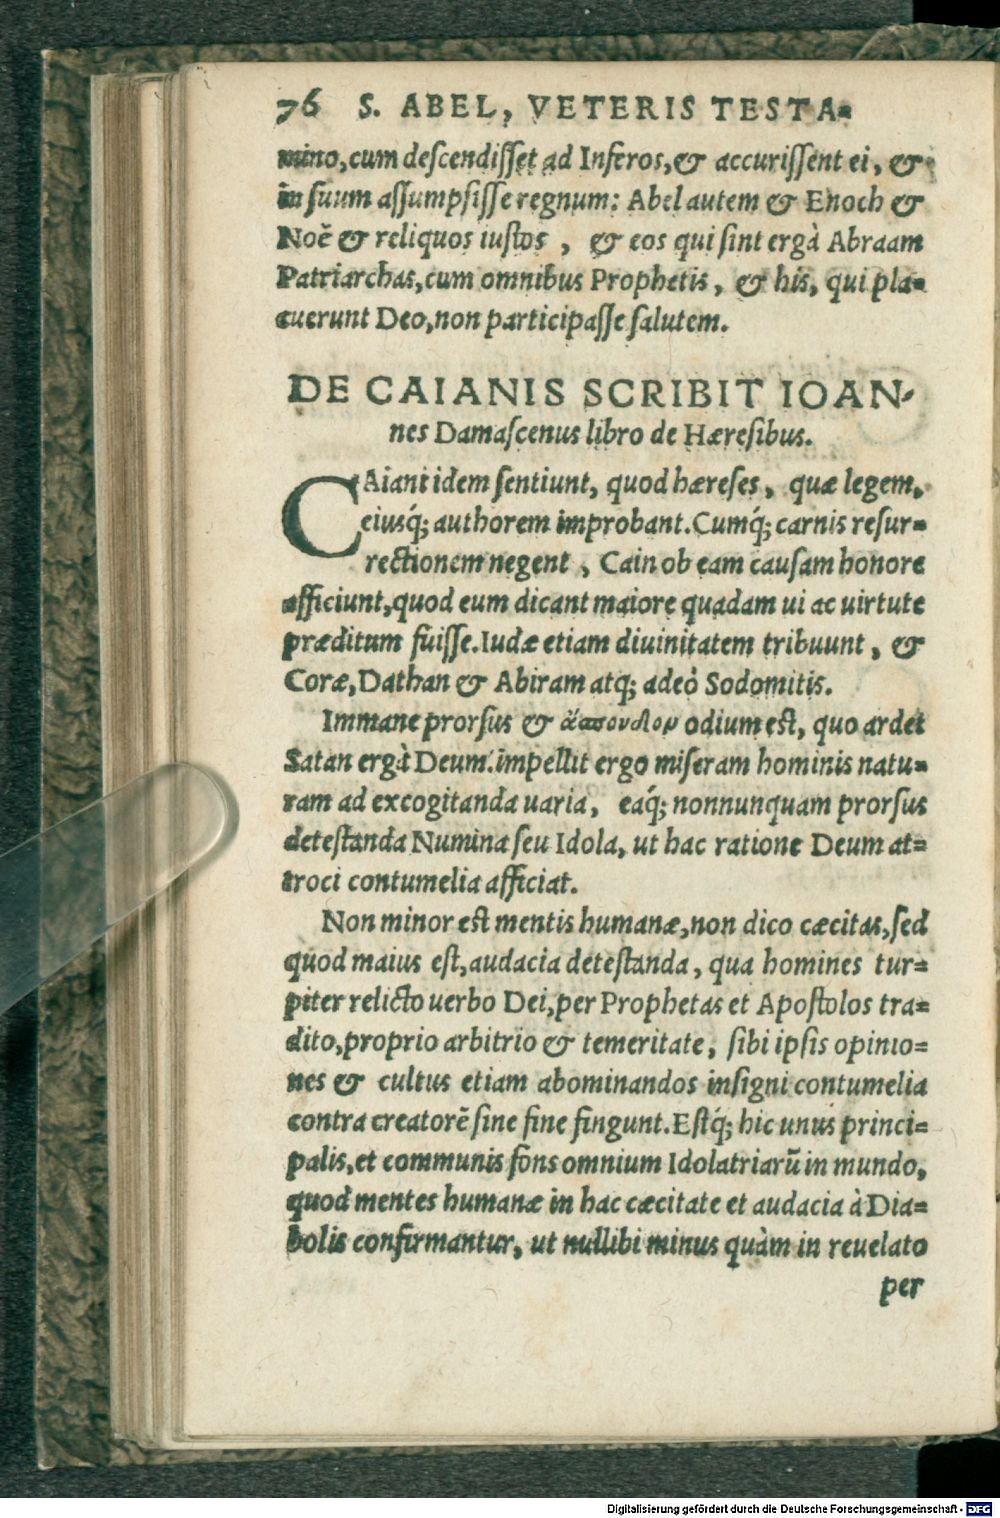 76 S. ABEL, VETERIS TESTA-
mino, cum descendisset ad Inferos, & accurissent ei, &
in suum assumpsisse regnum: Abel autem & Enoch &
Noē & reliquos iustos , & eos qui sint ergà Abraam
Patriarchas, cum omnibus Prophetis, & his, qui pla-
cuerunt Deo, non participasse salutem.
DE CAIANIS SCRIBIT IOAN-
nes Damascenus libro de Hæresibus.
CAiani idem sentiunt, quod hæreses, quæ legem,
eiusq́; authorem improbant. Cumq́; carnis resur-
rectionem negent , Cain ob eam causam honore
afficiunt, quod eum dicant maiore quadam ui ac uirtute
præditum fuisse. Iudæ etiam diuinitatem tribuunt, &
Coræ, Dathan & Abiram atq; adeò Sodomitis.
Immane prorsus & ἄσπονδον odium est, quo ardet
Satan ergà Deum. impellit ergo miseram hominis natu-
ram ad excogitanda uaria, eaq́; nonnunquam prorsus
detestanda Numina seu Idola, ut hac ratione Deum at-
troci contumelia afficiat.
Non minor est mentis humanæ, non dico cæcitas, sed
quod maius est, audacia detestanda, qua homines tur-
piter relicto uerbo Dei, per Prophetas et Apostolos tra-
dito, proprio arbitrio & temeritate, sibi ipsis opinio-
nes & cultus etiam abominandos insigni contumelia
contra creatorē sine fine fingunt. Estq́; hic unus princi-
palis, et communis fons omnium Idolatriarū in mundo,
quod mentes humanæ in hac cæcitate et audacia à Dia-
bolis confirmantur, ut nullibi minus quàm in reuelato
per
Digitalisierung gefördert durch die Deutsche Forschungsgemeinschaft - DFG